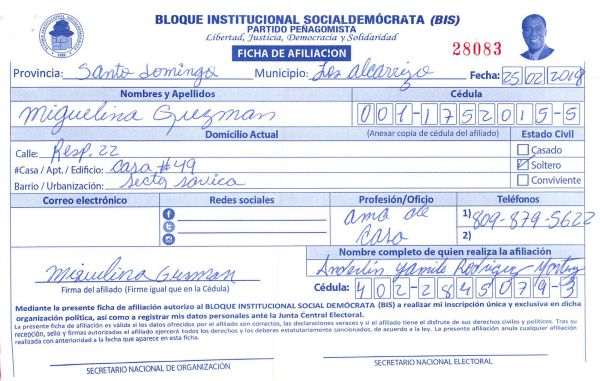 BLOQUE INSTITUCIONAL SOCIALDEMÓCRATA (BIS)
PARTIDO PEÑAGOMISTA
Libertad, Justicia, Democracia y Solidaridad
FICHA DE AFILIACIÓN
28083
Provincia: Santo Domingo Municipio: Los alcarrizo Fecha: 25 02 2019
Nombres y Apellidos Cédula
Miguelina Guzman 001-1752015-5
Domicilio Actual (Anexar copia de cédula del afiliado) Estado Civil
Calle: Resp. 22 Casado
#Casa / Apt. / Edificio: Casa #49 Soltero
Barrio / Urbanización: Sector savica Conviviente
Correo electrónico Redes sociales Profesión/Oficio Teléfonos
ama de casa
1) 809-879-5622
2)
Nombre completo de quien realiza la afiliación
Miguelina Gusman Anderlin Yamile Rodriguez
Firma del afiliado (Firme igual que en la Cédula) Cédula: 402-2845079-3
Mediante la presente ficha de afiliación autorizo al BLOQUE INSTITUCIONAL SOCIAL DEMÓCRATA (BIS) a realizar mi inscripción única y exclusiva en dicha
organización política, así como a registrar mis datos personales ante la Junta Central Electoral.
La presente ficha de afiliación es válida si los datos ofrecidos por el afiliado son correctos, las declaraciones veraces y si el afiliado tiene el disfrute de sus derechos civiles y políticos. Tras su
recepción, sello y firmas autorizadas el afiliado ejercerá todos los derechos y los deberes estatutariamente sancionados, de acuerdo a la ley. La presente afiliación anula cualquier afiliación
realizada con anterioridad a la fecha que aparece en esta ficha.
SECRETARIO NACIONAL DE ORGANIZACIÓN SECRETARIO NACIONAL ELECTORAL